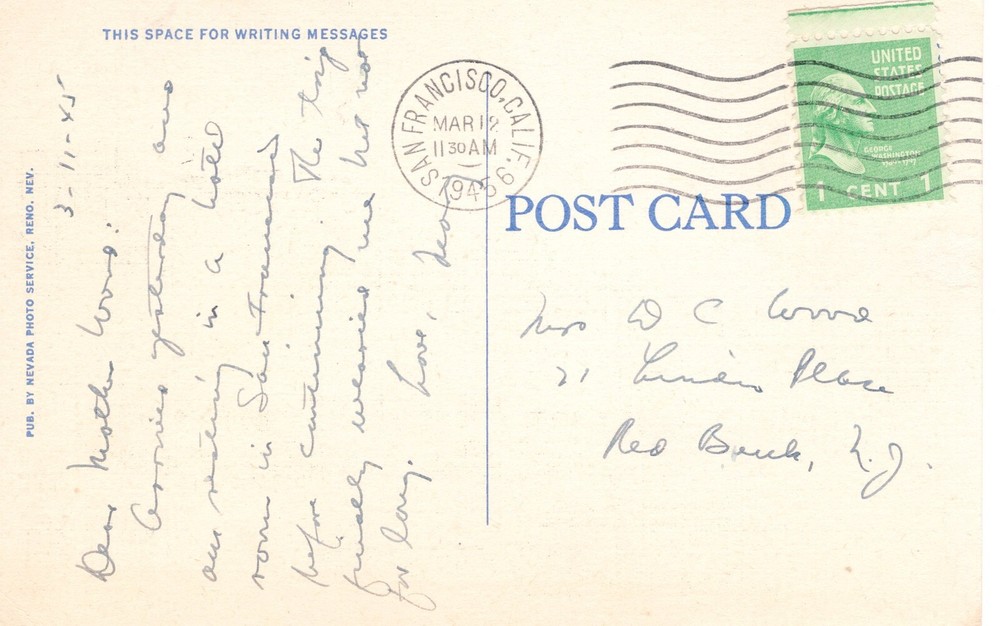 THIS SPACE FOR WRITING MESSAGES
PUB. BY NEVADA PHOTO SERVICE, RENO, NEV.
3-11-45
Dear Mother Wood:
Arrived yesterday and
are resting in a hotel
room in San Francisco
before continuing. The trip
finally wearied me but not
for long. Love,
SAN FRANCISCO, CALIF.
MAR 12
11 30 AM
1945
UNITED
STATES
POSTAGE
GEORGE
WASHINGTON
1 CENT 1
POST CARD
Mrs D C Wood
21 Place
Red Bank, N.J.